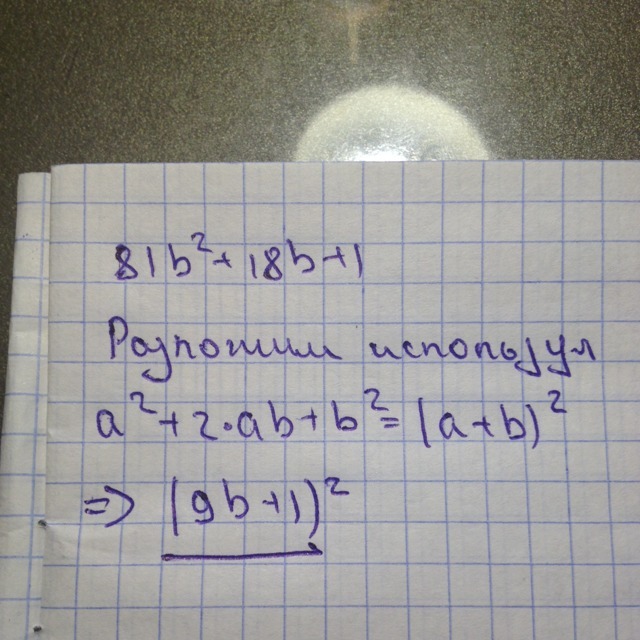 81b²+18b+1
Розложим используя
a²+2·ab+b²=(a+b)²
=> (9b+1)²